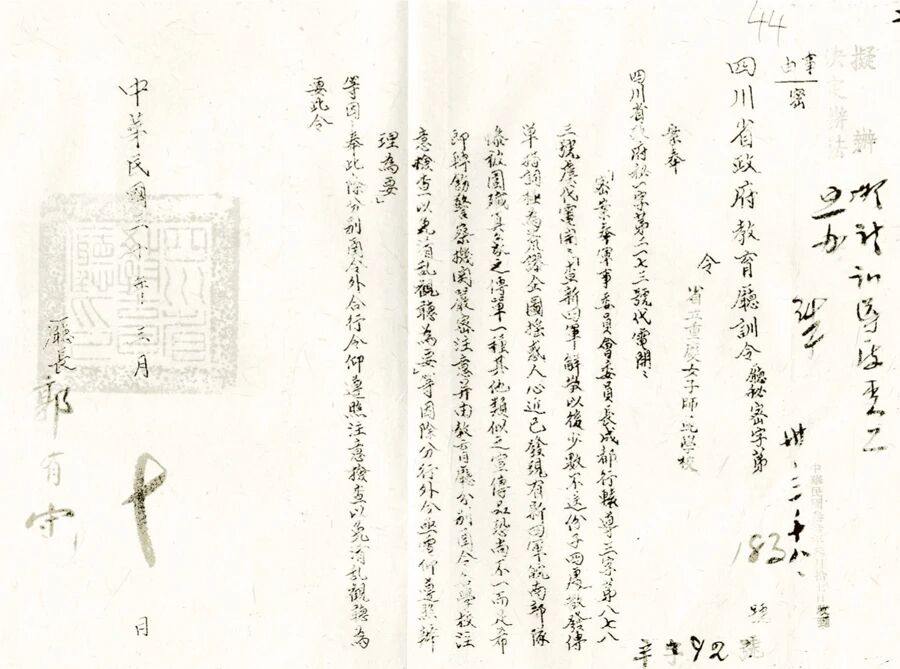 44
擬辦
決定辦法
事由
密
四川省政府教育廳訓令 廳秘密字第 號
183
令 省立重慶女子師範學校
案奉
四川省政府秘一字第二七三號代電開：
「密案奉軍事委員會委員長成都行轅導三字第八七八
三號虞代電開：「查新四軍解散以後少數不逞份子四處散發傳
單
企圖搖惑人心近已發現有新四軍皖南部隊
慘被圍殲真象之傳單一種其他類似之宣傳品恐尚不一而足希
即轉飭警察機關嚴密注意并由教育廳分別函令各學校注
意檢查以免淆亂觀聽為要」等因除分行外合亟電仰遵照辦
理為要」
等因奉此除分別函令外合行令仰遵照注意檢查以免淆亂觀聽為
要此令
中華民國三十年三月 日
廳長郭有守
辛字92號